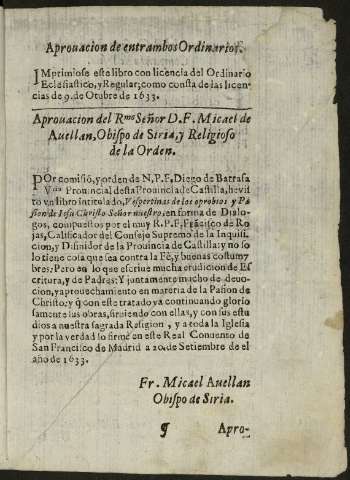 Aprouacion de entrambos Ordinarios.
IMprimiose este libro con licencia del Ordinario
Eclesiastico, y Regular; como consta de las licen-
cias de 9. de Otubre de 1633.
Aprouacion del Rmo Señor D. F. Micael de
Auellan, Obispo de Siria, y Religioso
de la Orden.
POr comisió, y orden de N. P. F. Diego de Barrasa
Vno Prouincial desta Prouincia de Castilla, he vis
to vn libro intitulado, Vespertinas de los oprobios y Pa
sion de Iesu Christo Señor nuestro, en forma de Dialo-
gos, compuestos por el muy R. P. F. Frácisco de Ro
jas, Calificador del Consejo Supremo de la Inquisi-
cion, y Difinidor de la Prouincia de Castilla: y no so
lo tiene cosa que sea contra la Fè, y buenas costum?
bres: Pero en lo que escriue mucha erudicion de Es
critura, y de Padres: Y juntamente mucho de deuo-
cion, y aprouechamiento en materia de la Pasion de
Christo: y q̃ con este tratado va continuando glorio
samente sus obras, siruiendo con ellas, y con sus estu
dios a nuestra sagrada Religion, y a toda la Iglesia
y por la verdad lo firmè en este Real Conuento de
San Francisco de Madrid a 20. de Setiembre de el
año de 1633.
Fr. Micael Auellan
Obispo de Siria.
¶ Apro-